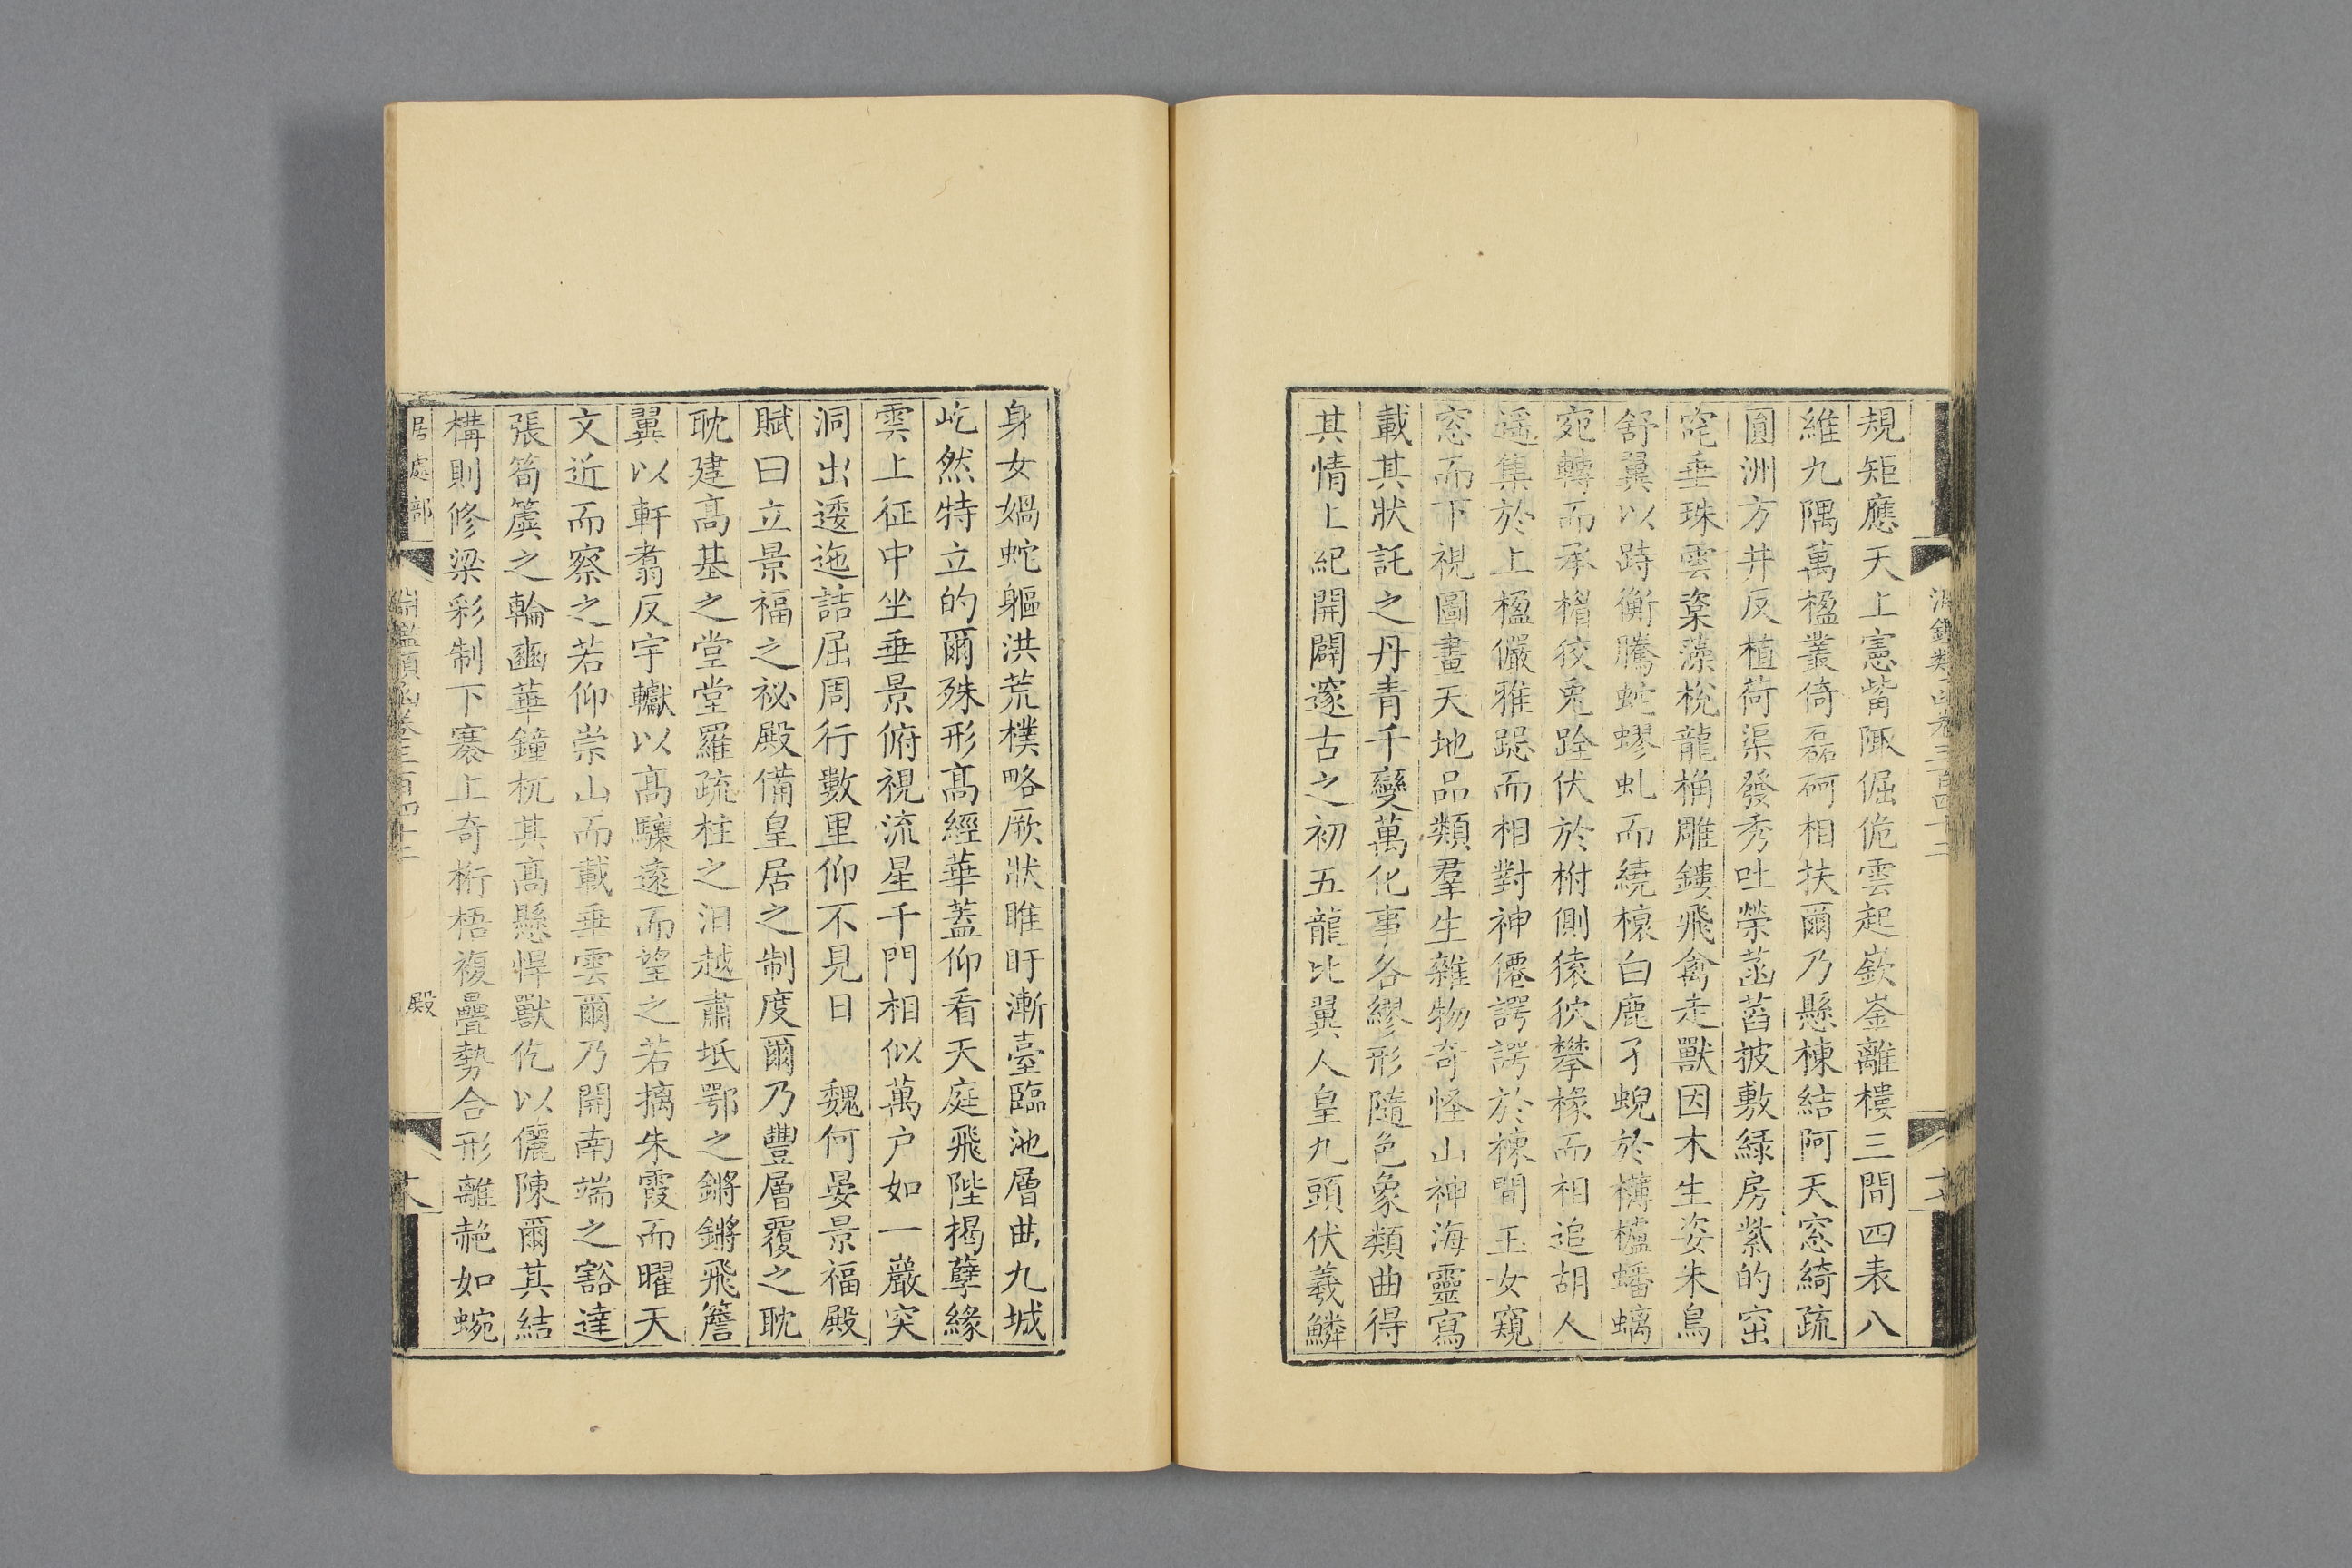 規矩應天上憲觜陬倔佹雲起嶔崟離樓三間四表八
維九隅萬楹叢倚磊砢相扶爾乃懸棟結阿天窓綺疏
圓洲方井反植荷渠發秀吐榮菡萏披敷緑房紫的窋
窀垂珠雲楶藻梲龍桷雕鏤飛禽走獸因木生姿朱鳥
舒翼以跱衡騰蛇蟉虬而繞榱白鹿孑蜺於欂櫨蟠螭
宛轉而承楣狡兎跧伏於柎側猿狖攀椽而相追胡人
遥集於上楹儼雅跽而相對神僊諤諤於棟間玉女窺
窓而下視圖畫天地品類羣生雜物奇怪山神海靈寫
載其狀託之丹青千變萬化事各繆形隨色象類曲得
其情上紀開闢邃古之初五龍比翼人皇九頭伏羲鱗
身女媧蛇軀洪荒樸略厥狀睢盱漸臺臨池層曲九城
屹然特立的爾殊形髙經華蓋仰看天庭飛陛揭孽緣
雲上征中坐垂景俯視流星千門相似萬户如一巖突
洞出逶迤詰屈周行數里仰不見日 魏何晏景福殿
賦曰立景福之祕殿備皇居之制度爾乃豐層覆之耽
耽建髙基之堂堂羅疏柱之汩越肅坻鄂之鏘鏘飛簷
翼以軒翥反宇轍以髙驤遠而望之若摛朱霞而曜天
文近而察之若仰崇山而載垂雲爾乃開南端之豁達
張筍簴之輪豳華鐘杌其髙懸悍獸仡以儷陳爾其結
構則修梁彩制下褰上奇桁梧複疊勢合形離赩如蜿
居處部 淵鑑類函卷三百四十二 殿